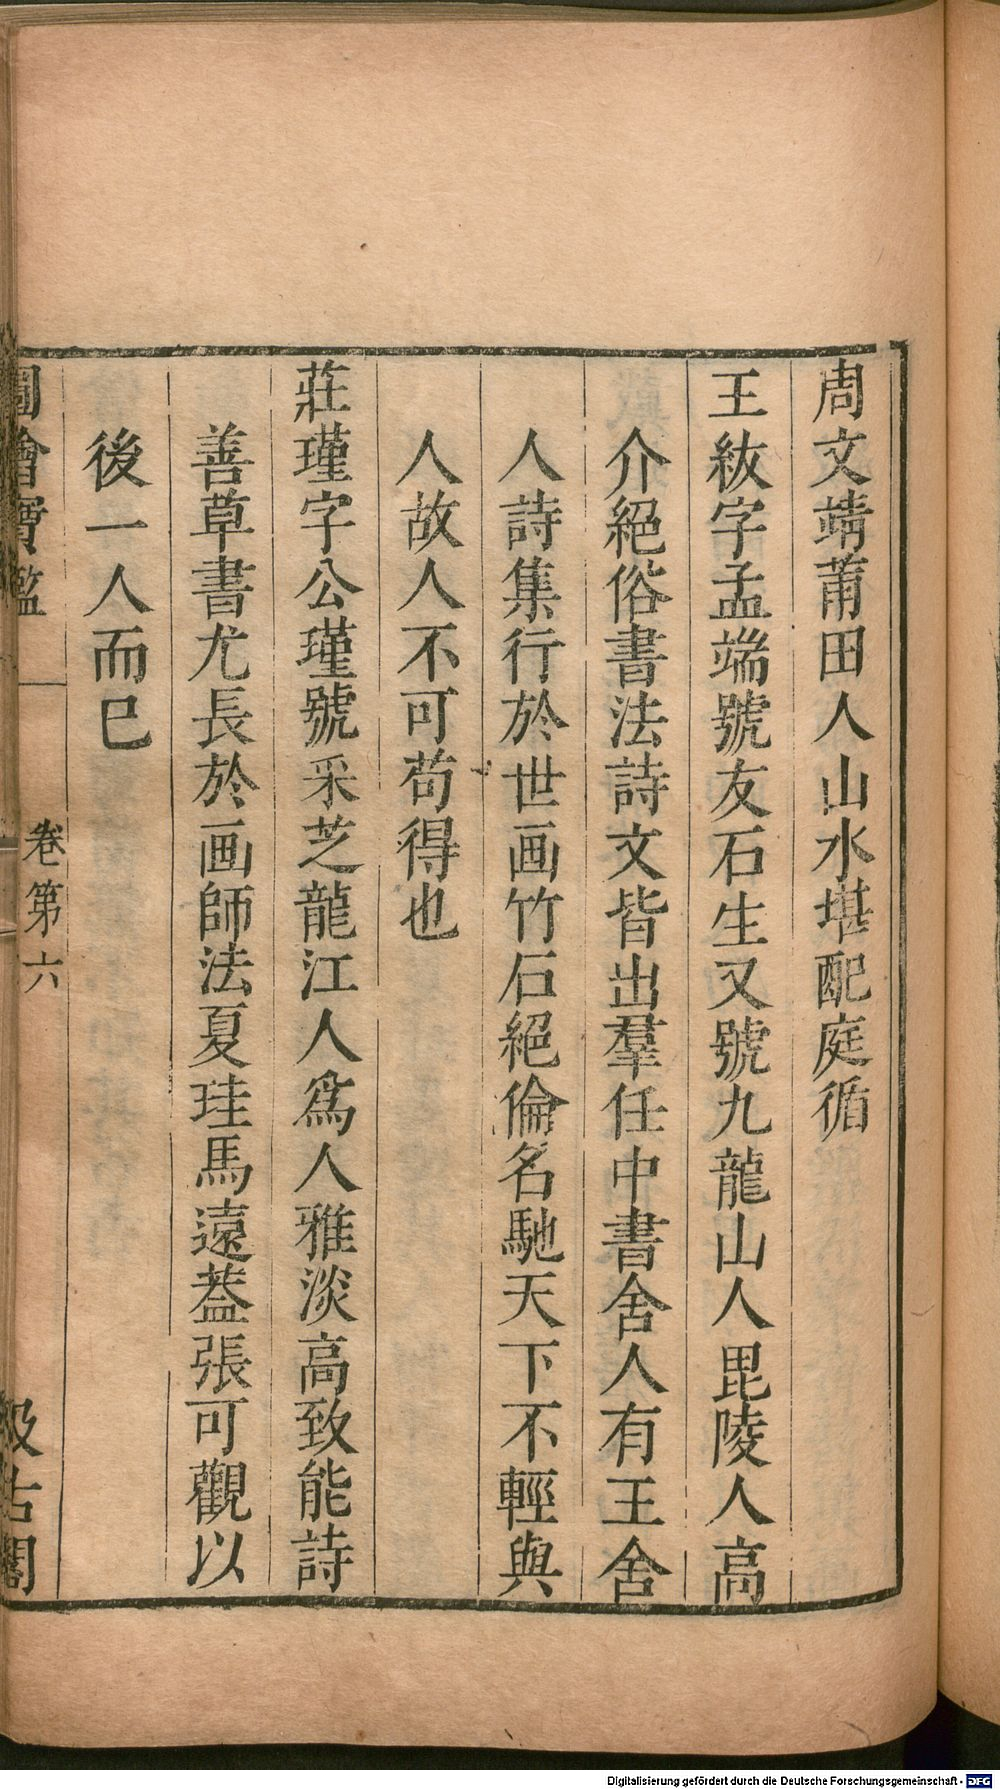 周文靖莆田人山水堪配庭循
王紱字孟端號友石生又號九龍山人毘陵人高
介絕俗書法詩文皆出羣任中書舍人有王舍
人詩集行於世画竹石絕倫名馳天下不輕與
人故人不可苟得也
莊瑾字公瑾號采芝龍江人爲人雅淡高致能詩
善草書尤長於画師法夏珪馬遠葢張可觀以
後一人而已
圖繪寶鑑 卷第六 汲古閣
Digitalisierung gefördert durch die Deutsche Forschungsgemeinschaft - DFG